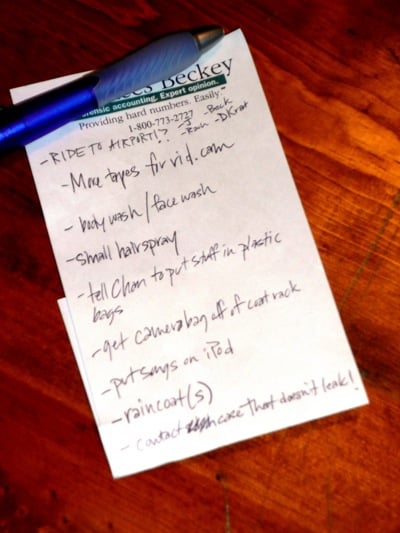 Beckey
forensic accounting. Expert opinion.
Providing hard numbers. Easily.
1-800-773-2727
- Beck
- RIDE TO AIRPORT!? - Rain - DKrat
- More tapes for vid. cam
- body wash / face wash
- small hairspray
- tell Cham to put stuff in plastic
bags
- get camera bag off of coat rack
- put songs on iPod
- raincoat(s)
- contact case that doesn't leak!